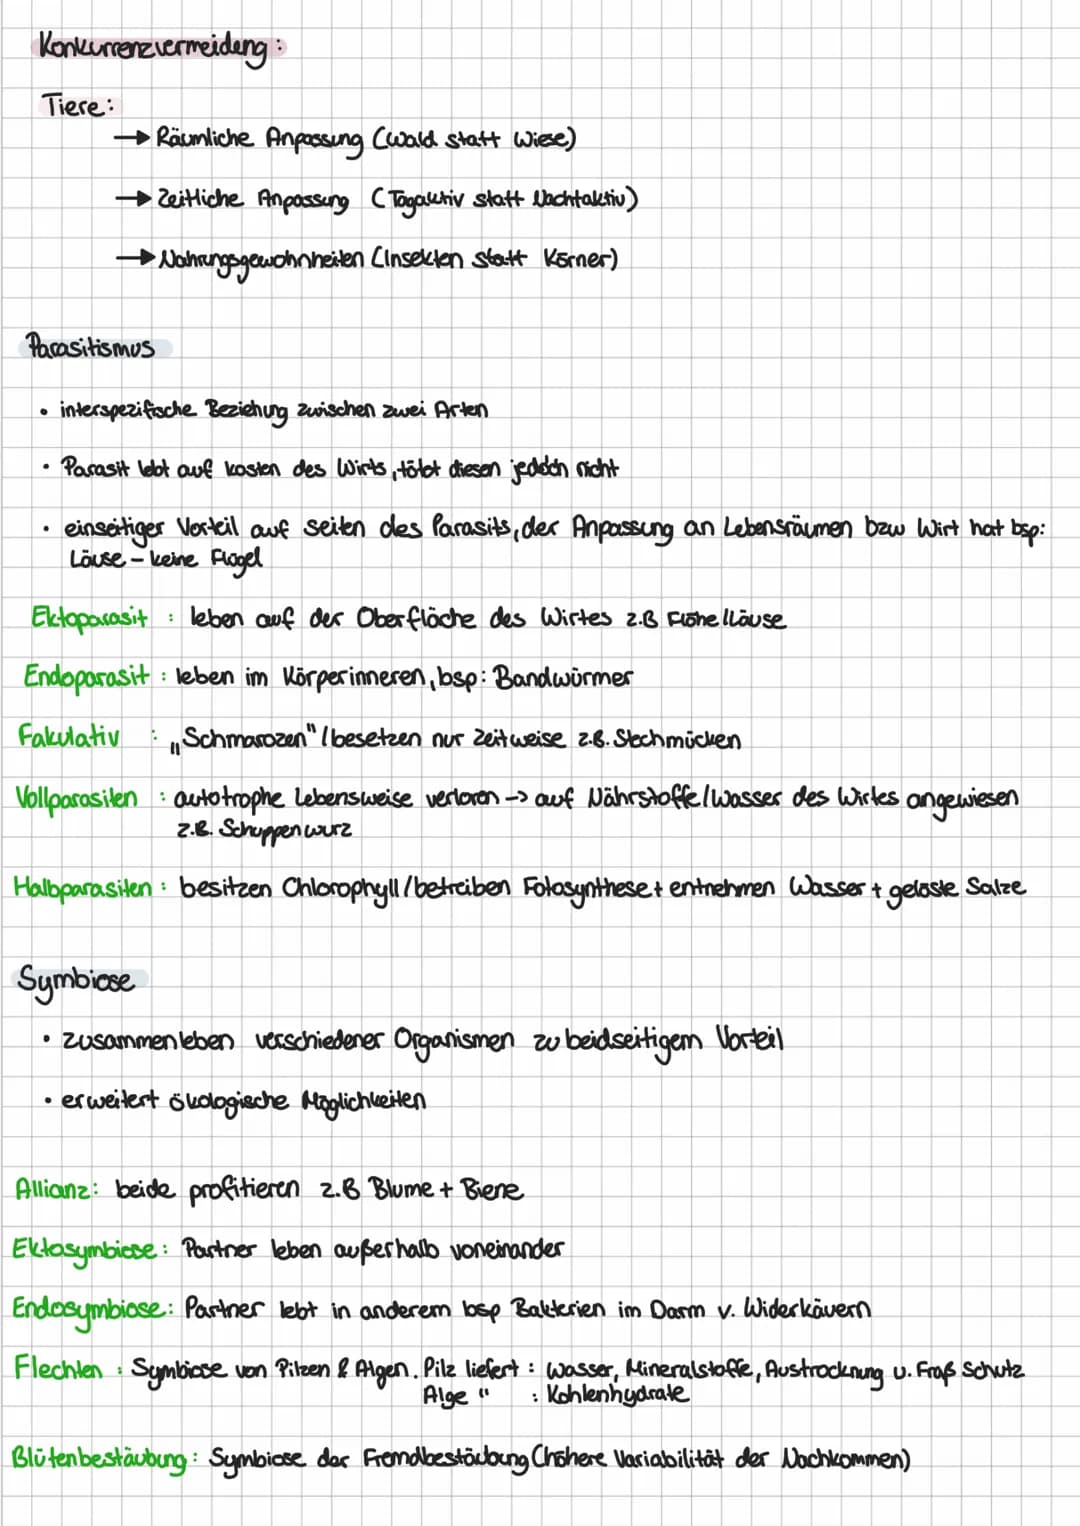 Konkurrenzvermeidung :
Tiere :
→ Räumliche Anpassung (Wald statt Wiese)
→ Zeitliche Anpassung (Tagaktiv statt Nachtaktiv)
→ Nahrungsgewohnheiten (Insekten statt Körner)
Parasitismus
• interspezifische Beziehung zwischen zwei Arten
• Parasit lebt auf kosten des Wirts, tötet diesen jedoch nicht
• einseitiger Vorteil auf seiten des Parasits, der Anpassung an Lebensräumen bzw Wirt hat bsp:
Läuse – keine Flügel
Ektoparasit : leben auf der Oberfläche des Wirtes z.B Flöhe/Läuse
Endoparasit : leben im Körperinneren, bsp: Bandwürmer
Fakulativ : „Schmarozen" / besetzen nur Zeitweise z.B. Stechmücken
Vollparasiten : autotrophe Lebensweise verloren -> auf Nährstoffe/Wasser des Wirtes angewiesen
z.B. Schuppenwurz
Halbparasiten : besitzen Chlorophyll / betreiben Fotosynthese + entnehmen Wasser + gelöste Salze
Symbiose
• zusammenleben verschiedener Organismen zu beidseitigem Vorteil
• erweitert ökologische Möglichkeiten
Allianz : beide profitieren z.B Blume + Biene
Ektosymbiose : Partner leben außerhalb voneinander
Endosymbiose : Partner lebt in anderem bsp Bakterien im Darm v. Widerkäuern
Flechten : Symbiose von Pilzen & Algen. Pilz liefert : Wasser, Mineralstoffe, Austrocknung u. Fraß Schutz
Alge " : Kohlenhydrate
Blütenbestäubung : Symbiose der Fremdbestäubung (höhere Variabilität der Nachkommen)